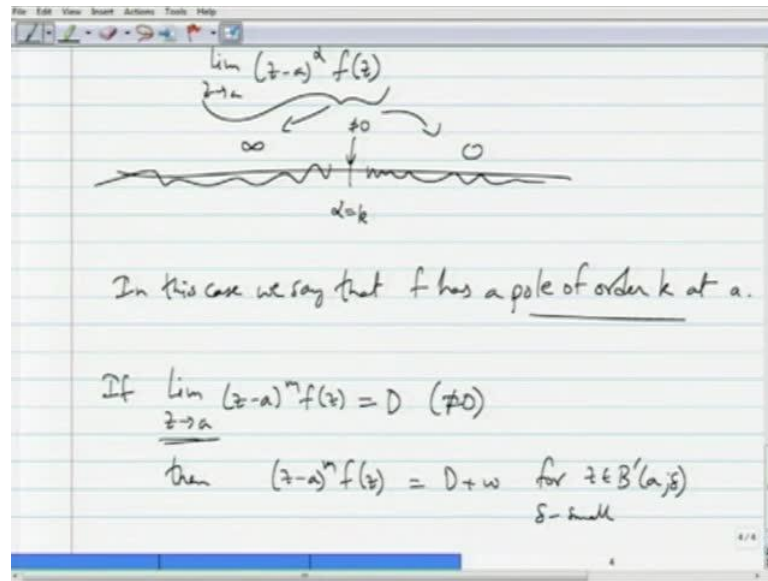 File Edit View Insert Actions Tools Help
lim (z-a)^α f(z)
z→a
≠0
∞ 0
α=k
In this case we say that f has a pole of order k at a.
If lim (z-a)^m f(z) = D (≠0)
z→a
then (z-a)^m f(z) = D+w for z∈B'(a;δ)
δ-small
4/4
4